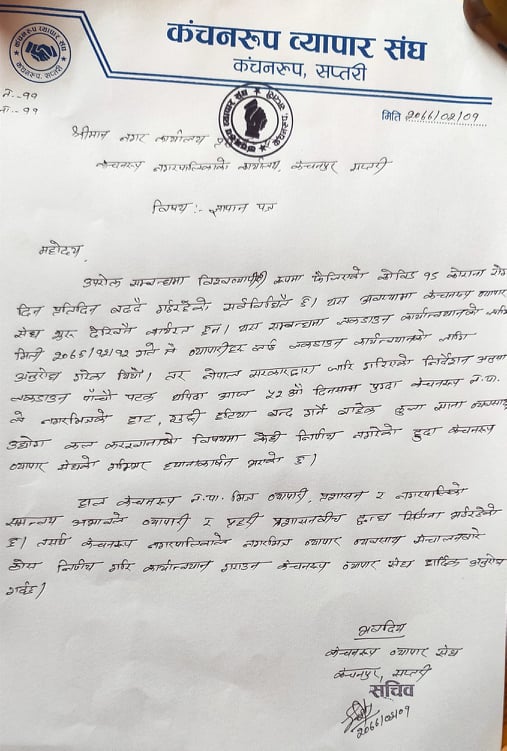 कंचनरूप व्यापार संघ
कंचनरूप, सप्तरी
मिति
श्रीमान नगर कार्यालय
कंचनरूप नगरपालिकाको कार्यालय, कंचनपुर सप्तरी
विषय :- ज्ञापन पत्र
महोदय,
उपरोक्त सम्बन्धमा विश्वव्यापी रूपमा फैलिएको कोभिड १९ कोरोना रोग
दिन प्रतिदिन बढ्दै गईरहेको सर्वविदितै छ। यस अवस्थामा कंचनरूप व्यापार
संघ शुरू देखिनै कार्यरत छन। यस सम्बन्धमा लकडाउन कार्यान्वयनको लागि
मिती गते नै व्यापारीहरू लाई लकडाउन कार्यान्वयनको लागि
अनुरोध गरेका थियौं। तर नेपाल सरकारद्वारा जारि गरिएको निर्देशन अनुसार
लकडाउन पाँचौ पटक थपिदा आज ५२ औं दिनसम्म पुग्दा कंचनरूप न.पा.
ले नगरभित्रको हाट, बन्द गर्ने बाहेक साना व्यवसाय
उद्योग कल कारखानाको विषयमा केही निर्णय नगरेको हुदा कंचनरूप
व्यापार संघको गम्भिर ध्यानाकर्षन भएको छ।
हाल कंचनरूप न.पा. भित्र व्यापारी, प्रशासन र नगरपालिको
समन्वय अभावले व्यापारी र प्रहरी प्रशासनबीच द्वन्द्व सिर्जना भईरहेको
छ। तसर्थ कंचनरूप नगरपालिकाले नगरभित्र व्यापार व्यवसाय संचालनबारे
ठोस निर्णय गरि कार्यान्वयन गराउन कंचनरूप व्यापार संघ हार्दिक अनुरोध
गर्दछ।
भवदिय
कंचनरूप व्यापार संघ
कंचनपुर, सप्तरी
सचिव